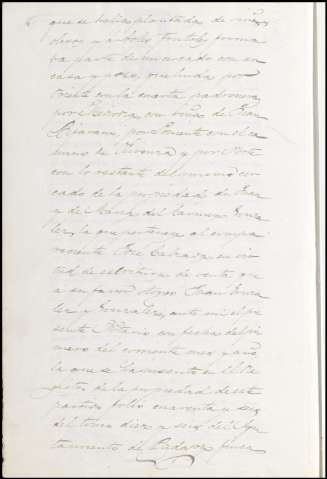 que se halla plantada de viña,
olivos y árboles frutales, forma
ba parte de un cercado con su
casa y pozo, que linda por
Oriente con la cuarta
por con viñas de Juan
por Poniente con el ca
mino de y por Norte
con lo restante del mismo cer
cado de la propiedad de Juan
y de María del Carmen Gonza
lez, la que pertenece al compa
reciente José en vir
tud de escritura de venta que
a su favor otorgó Juan Gonza
lez y Gonzalez, ante mí el pre
sente Notario en fecha del pri
mero del corriente mes y año,
la que se halla inscrita en el Re
gistro de la propiedad de este
partido, folio cuarenta y seis
del tomo diez y seis del Ayun
tamiento de finca